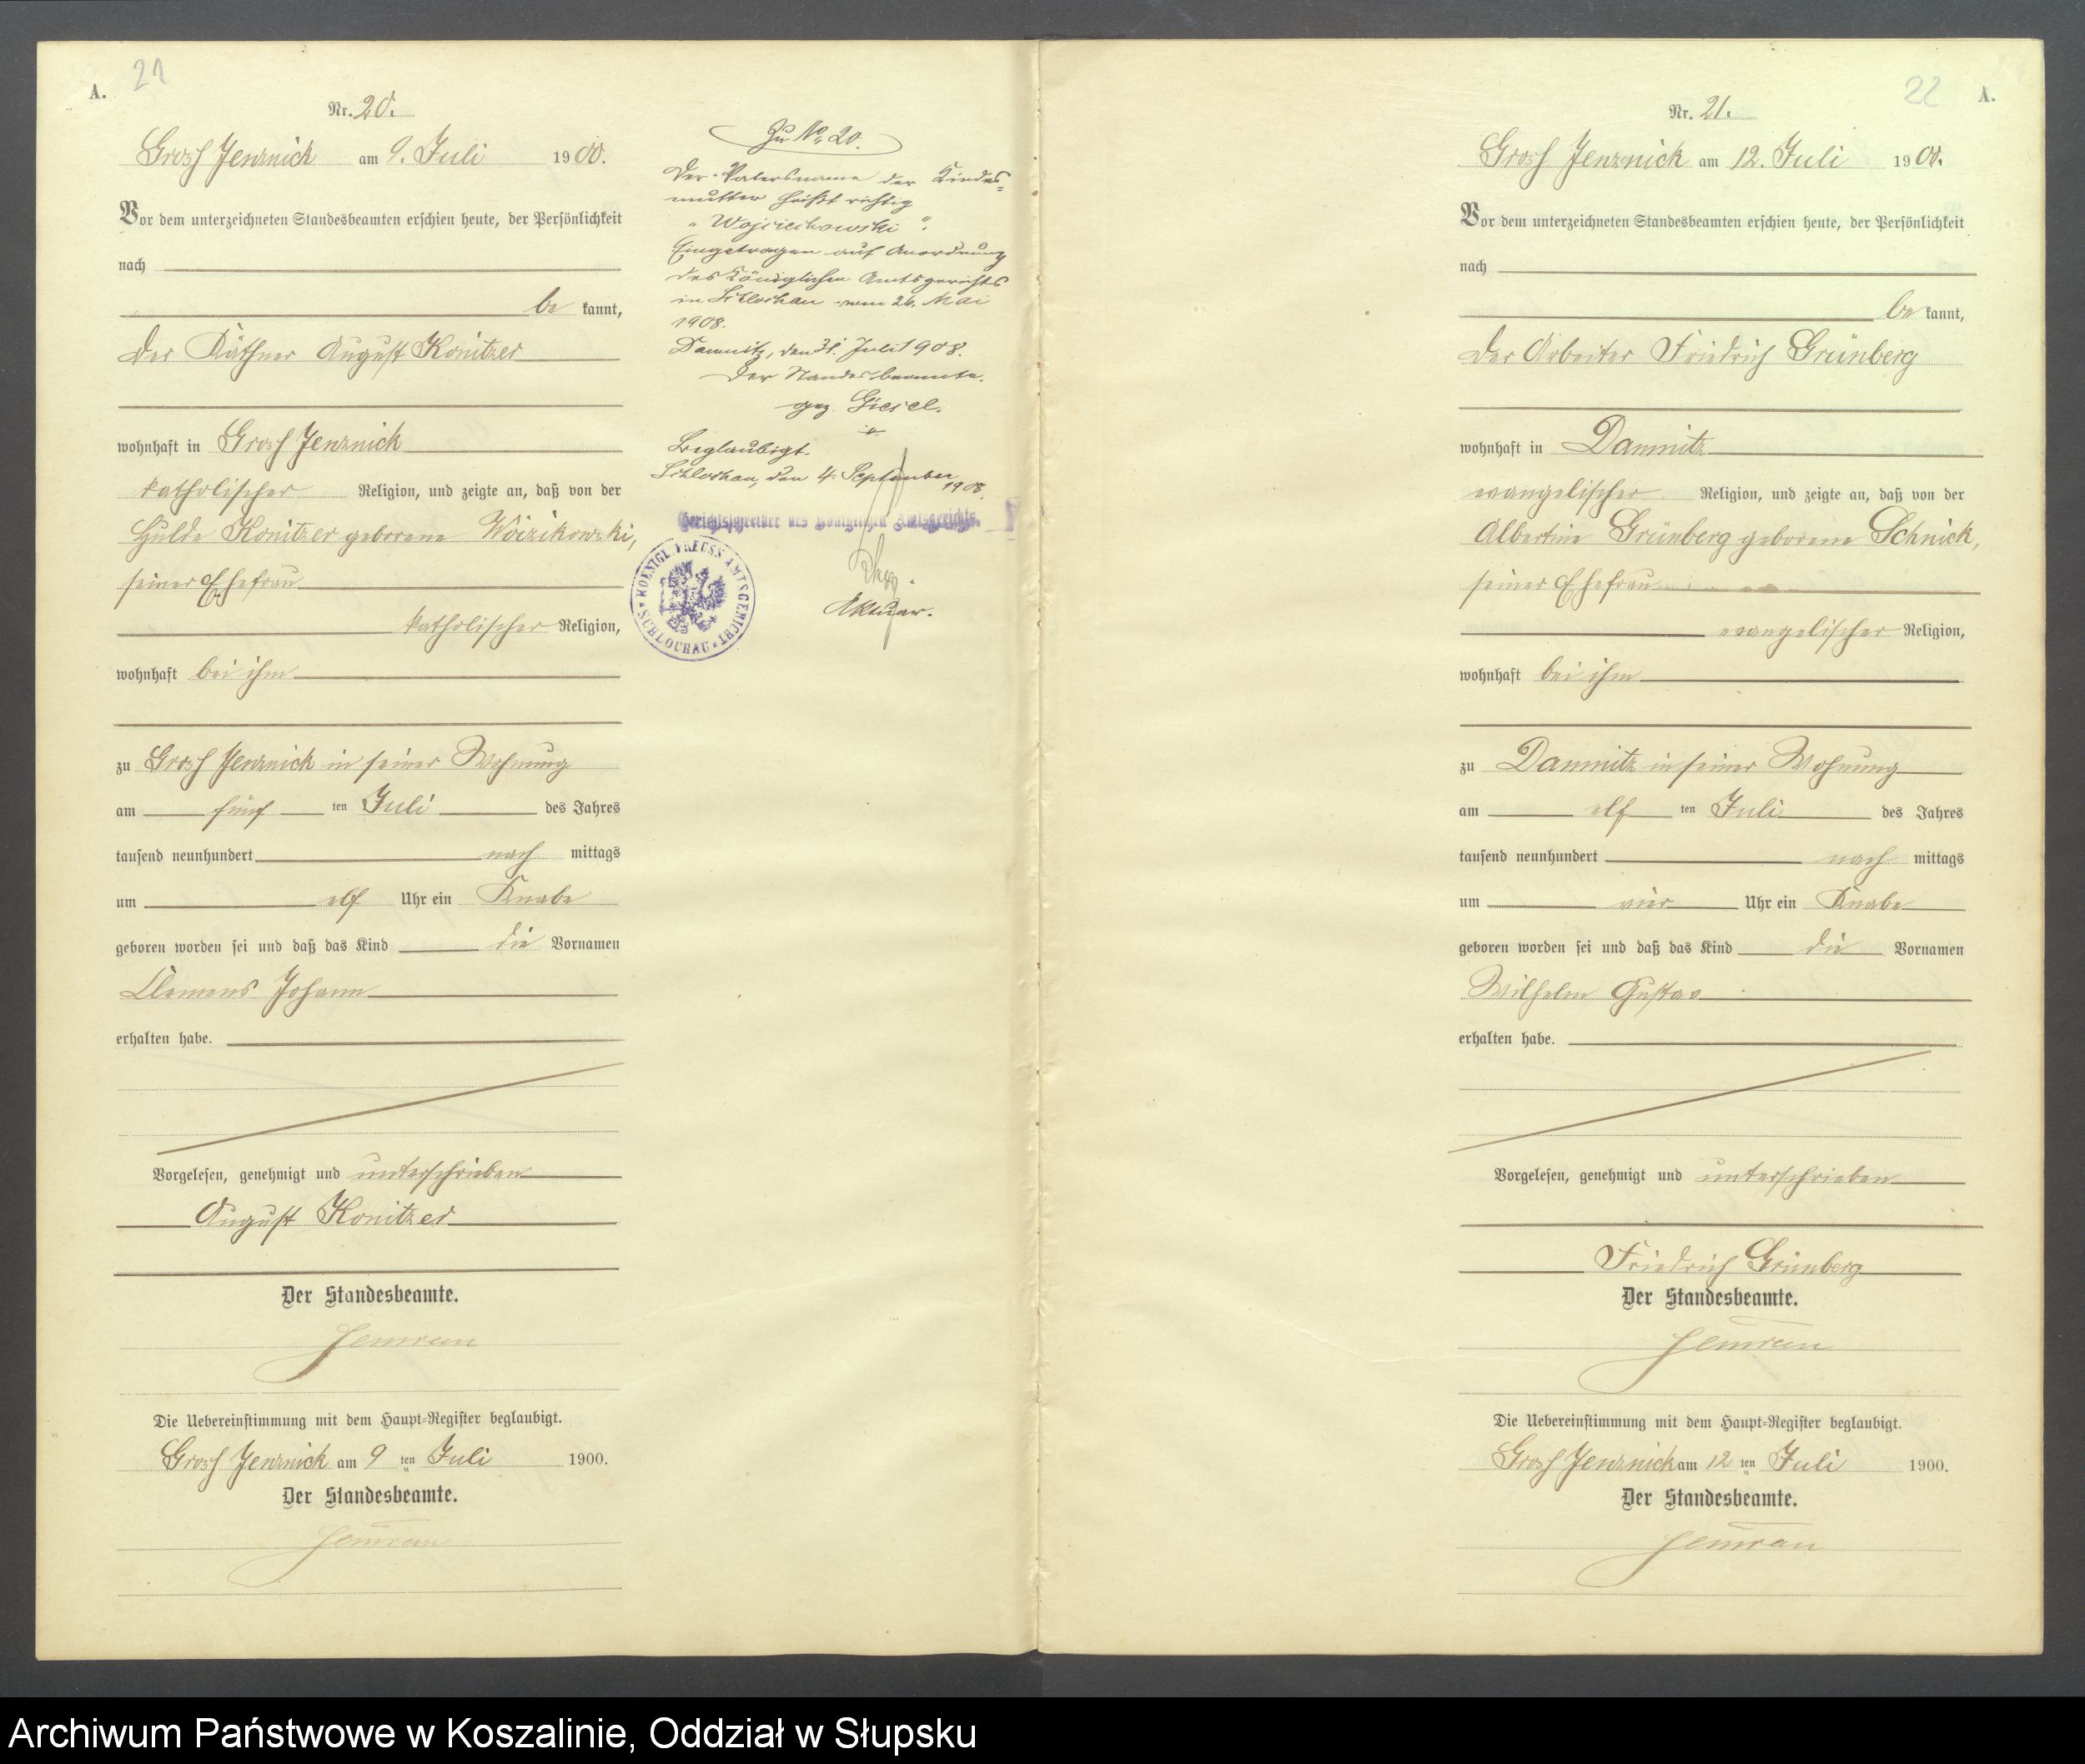 A.
21
Nr. 20.
Gross Jenznick am 9. Juli 1900.
Vor dem unterzeichneten Standesbeamten erschien heute, der Persönlichkeit
nach
be kannt,
der Käthner August Konitzer
wohnhaft in Gross Jenznick
katholischer Religion, und zeigte an, daß von der
Hulda Konitzer geborene Woizikowski,
seiner Ehefrau
katholischer Religion,
wohnhaft bei ihm
zu Gross Jenznick in seiner Wohnung
am fünf ten Juli des Jahres
tausend neunhundert nach mittags
um elf Uhr ein Knabe
geboren worden sei und daß das Kind die Vornamen
Clemens Johann
erhalten habe.
Vorgelesen, genehmigt und unterschrieben
August Konitzer
Der Standesbeamte.
Die Uebereinstimmung mit dem Haupt-Register beglaubigt.
Gross Jenznick am 9 ten Juli 1900.
Der Standesbeamte.
Zu No. 20.
Der Vatersname der Kindes-
mutter heißt richtig
"Wojciechowski".
Eingetragen auf Anordnung
des Königlichen Amtsgerichts
in Schlochau vom 26. Mai
1908.
Damnitz, den 31. Juli 1908.
Der Standesbeamte.
gez. Giesel.
Beglaubigt.
Schlochau, den 4. September
1908.
Gerichtsschreiber des Königlichen Amtsgerichts.
KOENIGL. PREUSS. AMTSGERICHT SCHLOCHAU
Aktuar.
22
A.
Nr. 21.
Gross Jenznick am 12. Juli 1900.
Vor dem unterzeichneten Standesbeamten erschien heute, der Persönlichkeit
nach
be kannt,
der Arbeiter Friedrich Grünberg
wohnhaft in Damnitz
evangelischer Religion, und zeigte an, daß von der
Albertine Grünberg geborene Schnick,
seiner Ehefrau
evangelischer Religion,
wohnhaft bei ihm
zu Damnitz in seiner Wohnung
am elf ten Juli des Jahres
tausend neunhundert nach mittags
um vier Uhr ein Knabe
geboren worden sei und daß das Kind die Vornamen
Wilhelm Gustav
erhalten habe.
Vorgelesen, genehmigt und unterschrieben
Friedrich Grünberg
Der Standesbeamte.
Die Uebereinstimmung mit dem Haupt-Register beglaubigt.
Gross Jenznick am 12 ten Juli 1900.
Der Standesbeamte.
Archiwum Państwowe w Koszalinie, Oddział w Słupsku